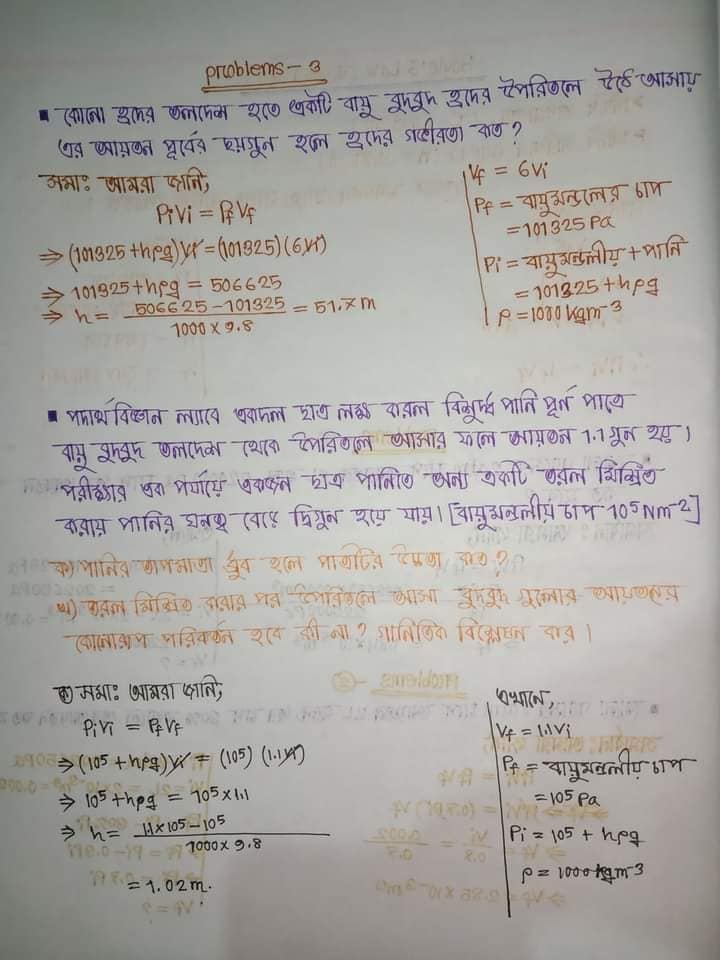 problems - 3
▪ কোনো হ্রদের তলদেশ হতে একটি বায়ু বুদবুদ হ্রদের উপরিতলে উঠে আসায়
এর আয়তন পূর্বের ছয়গুন হলে হ্রদের গভীরতা কত?
সমাঃ আমরা জানি,
PiVi = PfVf
⇒ (101325 + hρg)Vi = (101325)(6Vi)
⇒ 101325 + hρg = 506625
⇒ h = 506625 - 101325 / 1000 × 9.8 = 51.7 m
Vf = 6Vi
Pf = বায়ুমন্ডলের চাপ
= 101325 Pa
Pi = বায়ুমন্ডলীয় + পানি
= 101325 + hρg
ρ = 1000 kgm-3
▪ পদার্থবিজ্ঞান ল্যাবে একদল ছাত্র লক্ষ করল বিশুদ্ধ পানি পূর্ন পাত্রে
বায়ু বুদবুদ তলদেশ থেকে উপরিতলে আসার ফলে আয়তন 1.1 গুন হয়।
পরীক্ষার এক পর্যায়ে একজন ছাত্র পানিতে অন্য একটি তরল মিশ্রিত
করায় পানির ঘনত্ব বেড়ে দ্বিগুন হয়ে যায়। [বায়ুমন্ডলীয় চাপ 10⁵ Nm-2]
ক) পানির তাপমাত্রা ধ্রুব হলে পাত্রটির উচ্চতা কত?
খ) তরল মিশ্রিত করার পর উপরিতলে আসা বুদবুদ গুলোর আয়তনের
কোনোরূপ পরিবর্তন হবে কী না? গানিতিক বিশ্লেষন কর।
ক) সমাঃ আমরা জানি,
PiVi = PfVf
⇒ (10⁵ + hρg)Vi = (10⁵) (1.1Vi)
⇒ 10⁵ + hρg = 10⁵ × 1.1
⇒ h = 1.1 × 10⁵ - 10⁵ / 1000 × 9.8
= 1.02 m.
এখানে,
Vf = 1.1Vi
Pf = বায়ুমন্ডলীয় চাপ
= 10⁵ Pa
Pi = 10⁵ + hρg
ρ = 1000 kgm-3